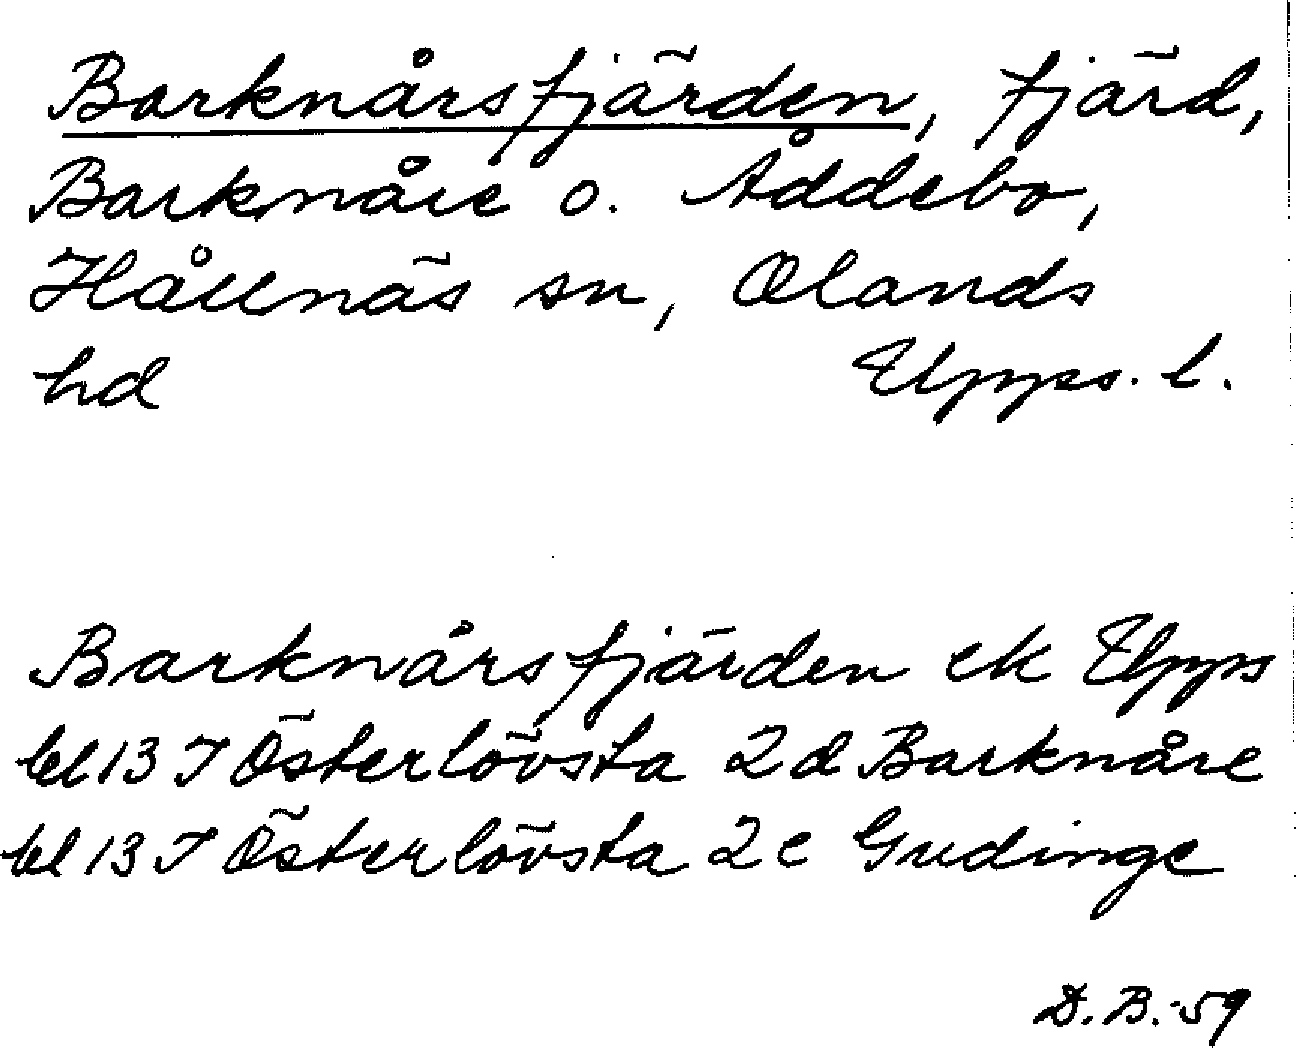 Barknårsfjärden, fjärd,
Barknåre o. Åddebo,
Hållnäs sn, Olands
hd Upps. l.
Barknårsfjärden ek Upps
bl 13 I Österlövsta 2 d Barknåre
bl 13 I Österlövsta 2 e Gudinge
D. B. -59